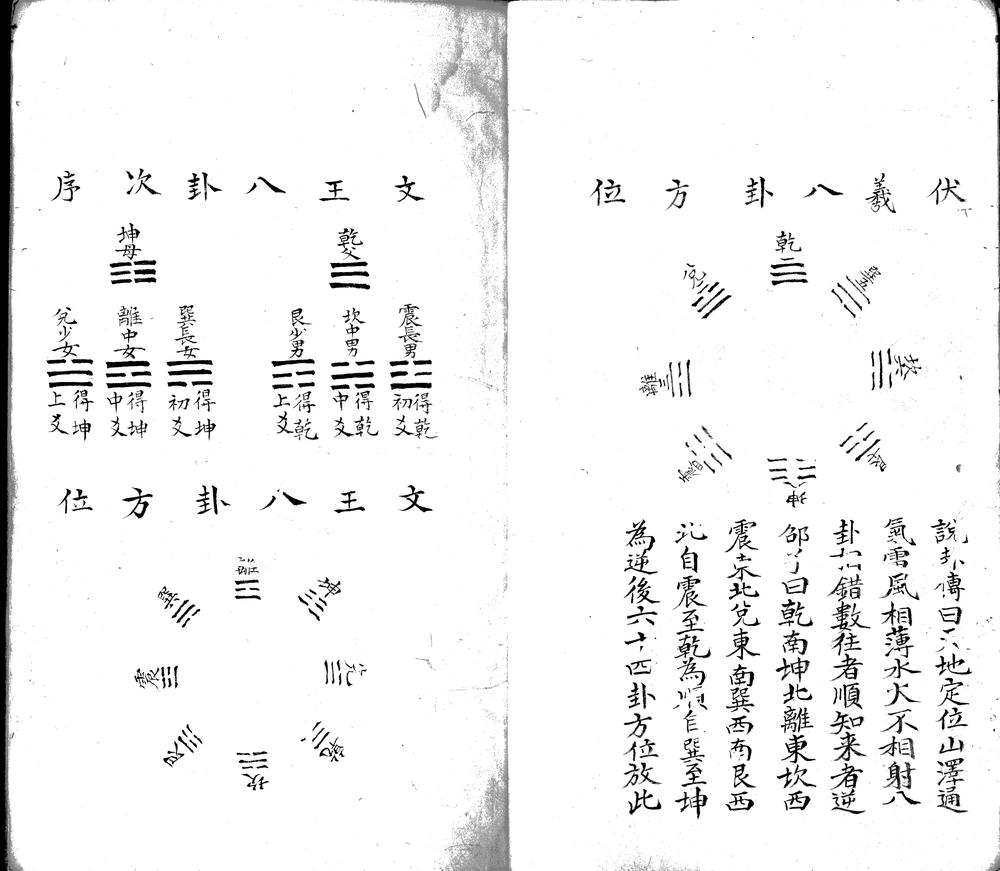 伏羲八卦方位
乾
兌
離
震
巽
坎
艮
坤
說卦傳曰天地定位山澤通
氣雷風相薄水火不相射八
卦相錯數往者順知来者逆
邵子曰乾南坤北離東坎西
震東北兌東南巽西南艮西
北自震至乾為順自巽至坤
為逆後六十四卦方位放此
文王八卦次序
乾父
坤母
震長男
得乾
初爻
坎中男
得乾
中爻
艮少男
得乾
上爻
巽長女
得坤
初爻
離中女
得坤
中爻
兌少女
得坤
上爻
文王八卦方位
離
坤
兌
乾
坎
艮
震
巽